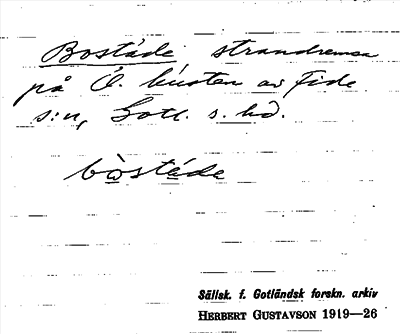 Bostäde, strandremsa
på Ö. kusten av Fide
s:n, Gotl. s. hd.
bòstéde
Sällsk. f. Gotländsk forskn. arkiv
HERBERT GUSTAVSON 1919—26